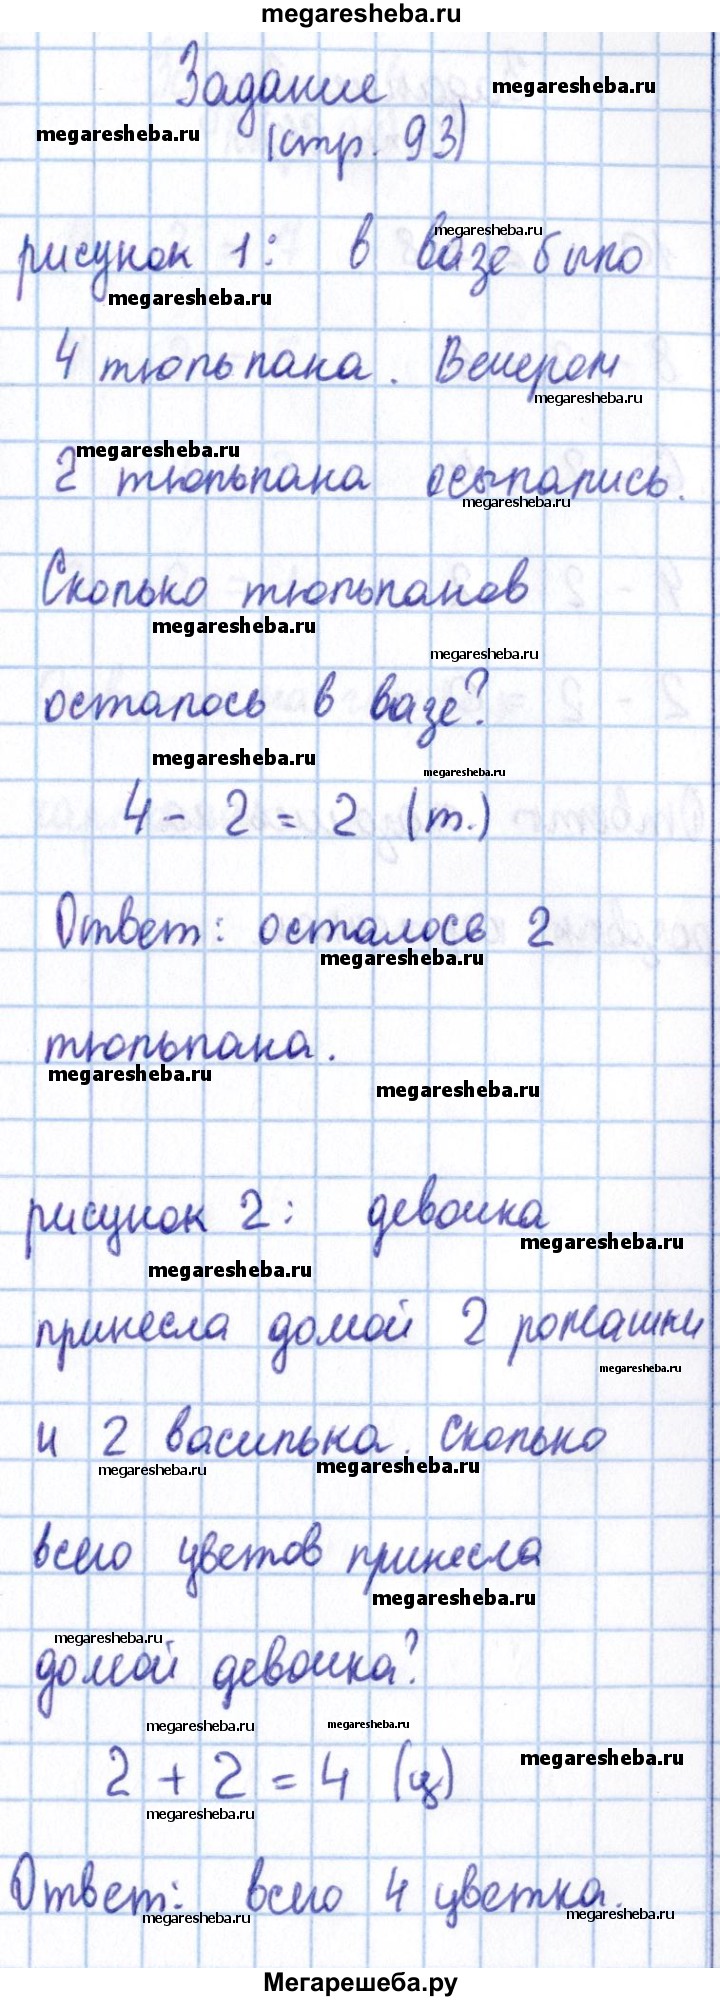 megaresheba.ru
Задание
megaresheba.ru
megaresheba.ru
(стр. 93)
megaresheba.ru
рисунок 1: в вазе было
megaresheba.ru
4 тюльпана. Вечером
megaresheba.ru
megaresheba.ru
2 тюльпана осыпались.
megaresheba.ru
Сколько тюльпанов
megaresheba.ru
megaresheba.ru
осталось в вазе?
megaresheba.ru
megaresheba.ru
4 - 2 = 2 (т.)
Ответ: осталось 2
megaresheba.ru
тюльпана.
megaresheba.ru
megaresheba.ru
рисунок 2: девочка
megaresheba.ru
megaresheba.ru
принесла домой 2 ромашки
megaresheba.ru
и 2 василька. Сколько
megaresheba.ru
megaresheba.ru
всего цветов принесла
megaresheba.ru
megaresheba.ru
домой девочка?
megaresheba.ru
megaresheba.ru
2 + 2 = 4 (ц)
megaresheba.ru
megaresheba.ru
Ответ: всего 4 цветка.
megaresheba.ru
megaresheba.ru
Мегарешеба.ру